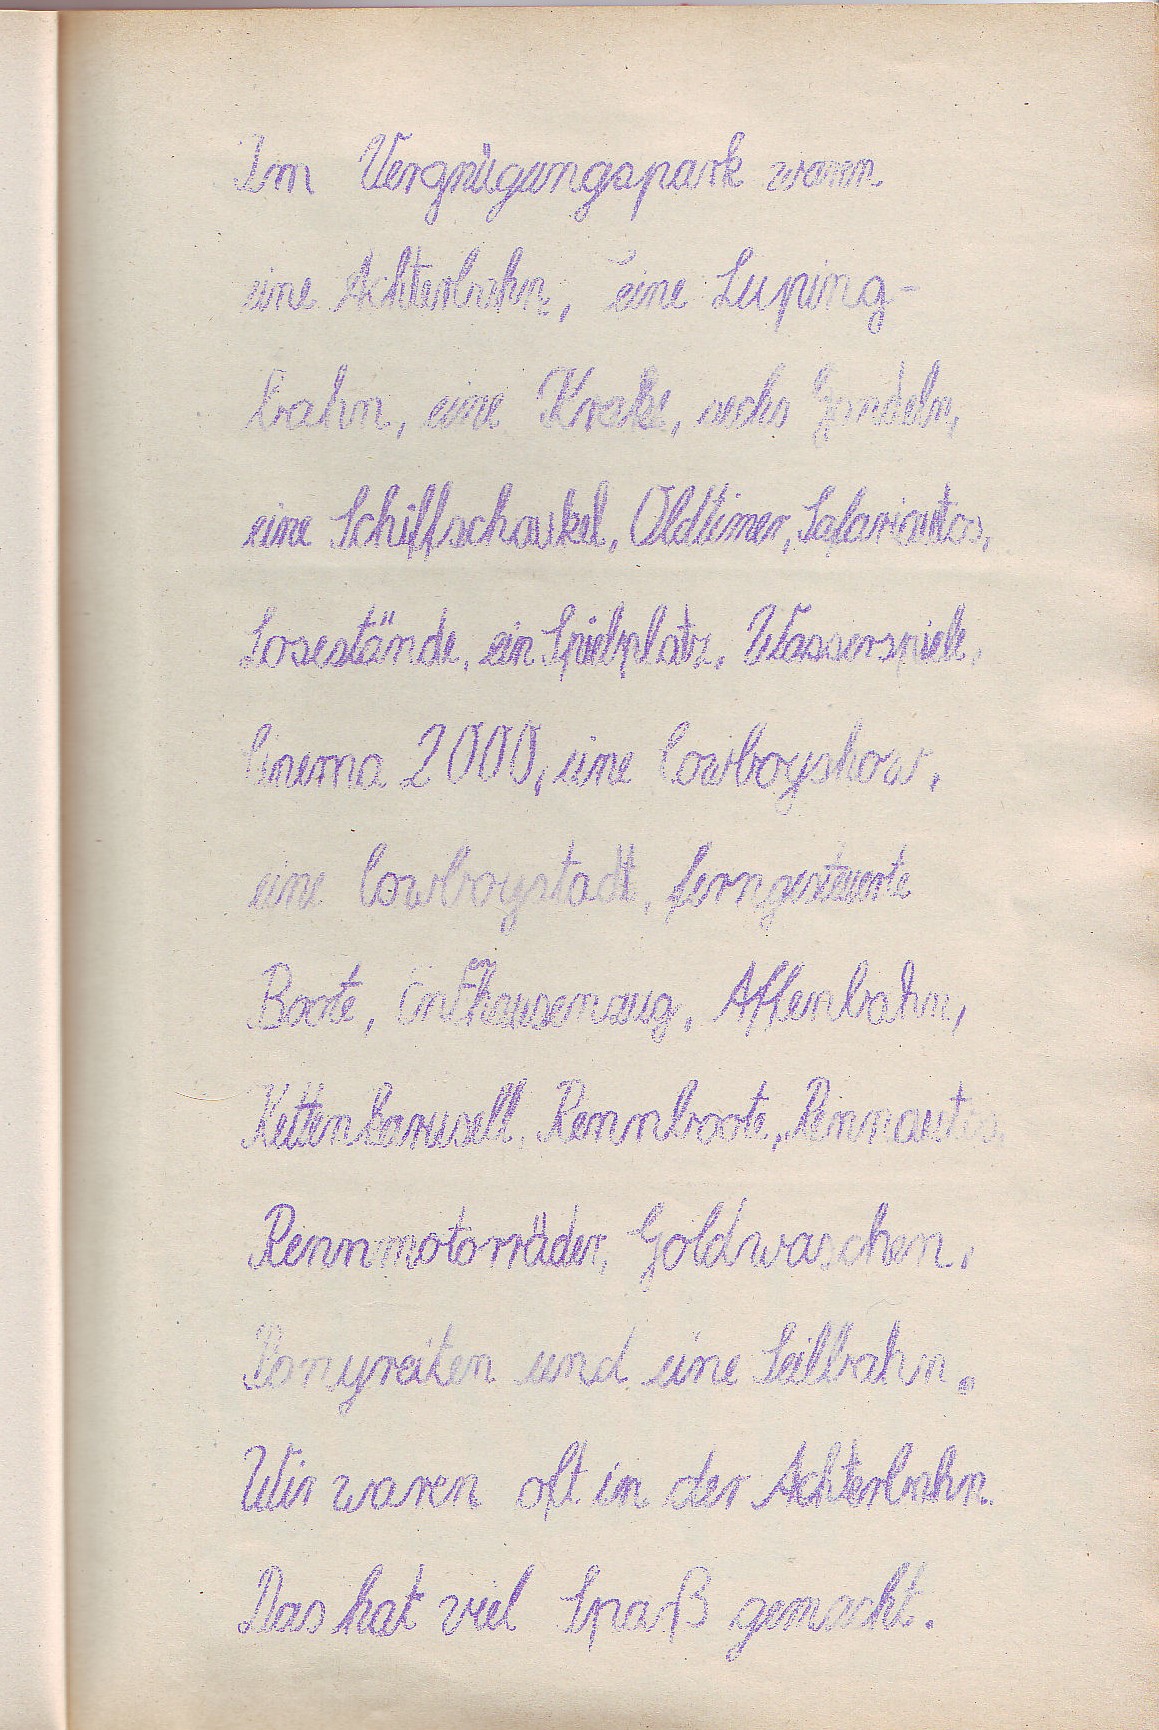 Im Vergnügungspark waren
eine Achterbahn, eine Luping-
bahn, eine Krake, sechs Gondeln,
eine Schiffschaukel, Oldtimer, Safariautos,
Losestände, ein Spielplatz, Wasserspiele,
Cinema 2000, eine Cowboyshow,
eine Cowboystadt, ferngesteuerte
Boote, Affenbahn,
Kettenkarusell, Rennboote, Rennautos,
Rennmotorräder, Goldwaschen,
Ponyreiten und eine Seilbahn.
Wir waren oft in der Achterbahn.
Das hat viel Spaß gemacht.